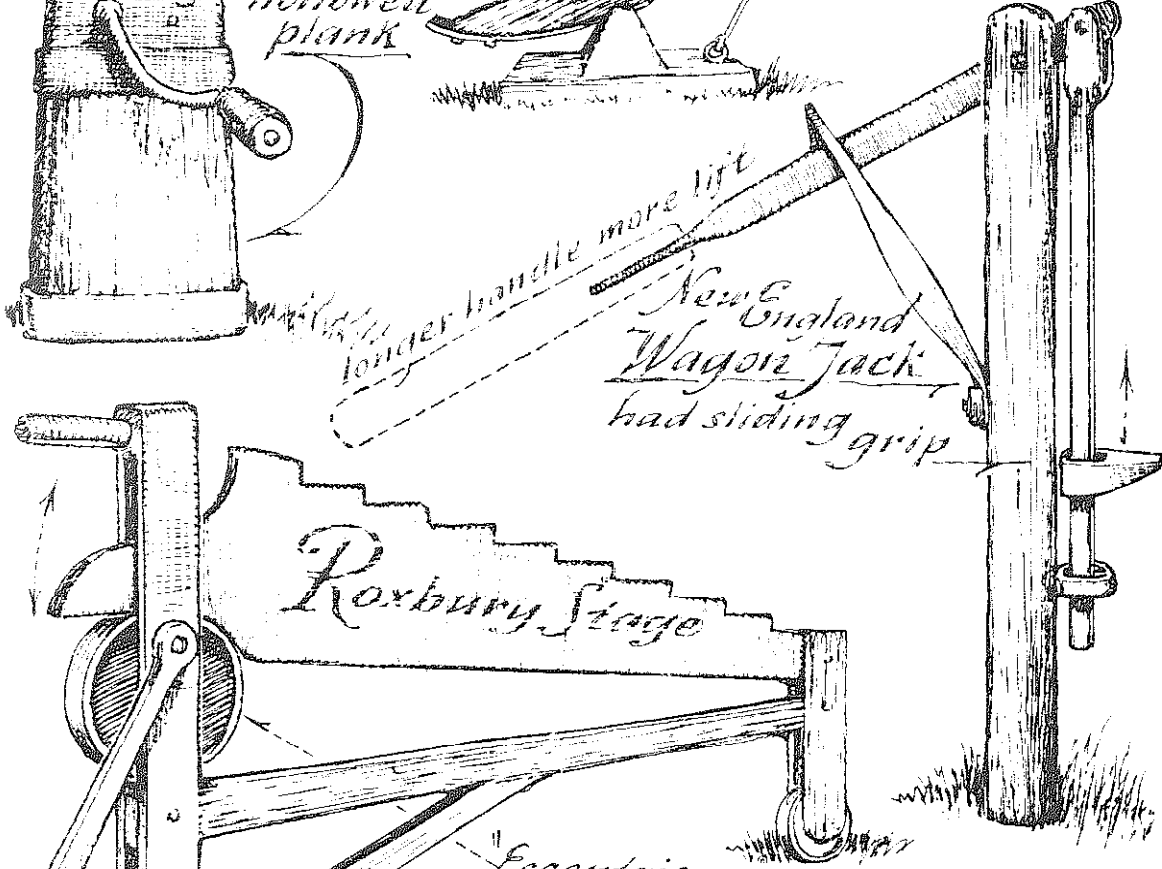 hollowed
plank
longer handle more lift
New England
Wagon Jack
had sliding
grip
Roxbury Stage
"Eccentric